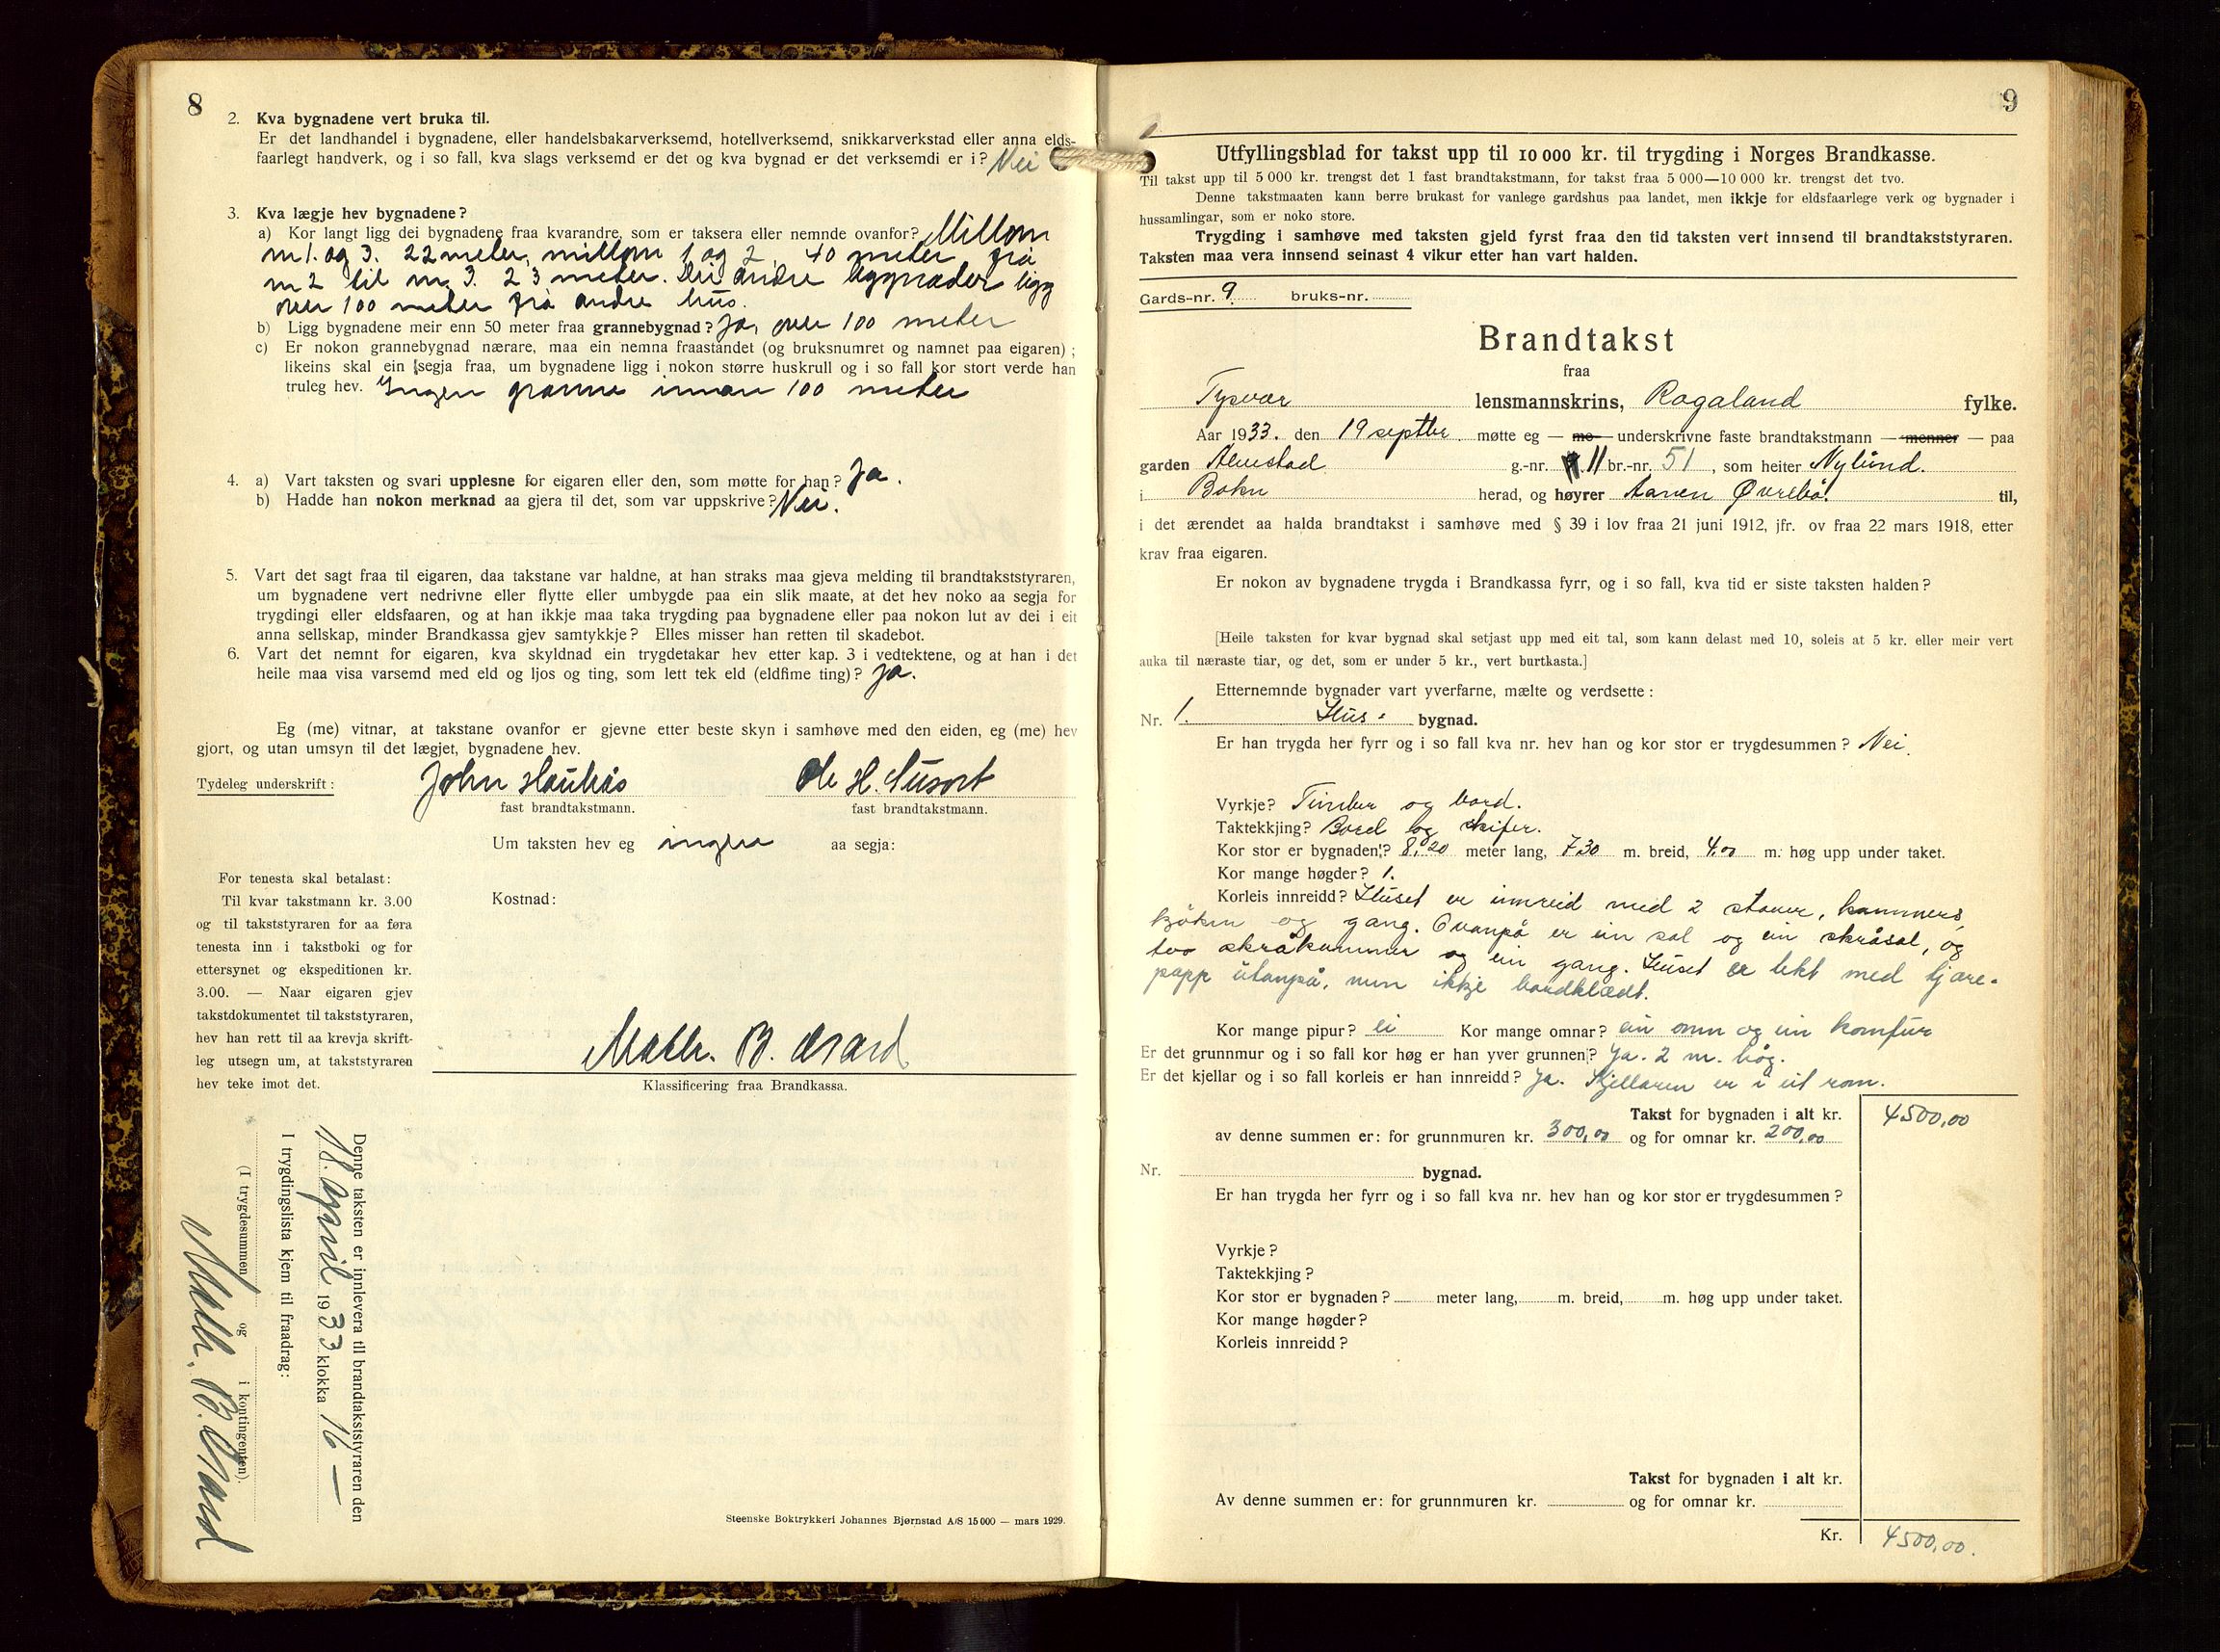 8
2. Kva bygnadene vert bruka til.
Er det landhandel i bygnadene, eller handelsbakarverksemd, hotellverksemd, snikkarverkstad eller anna elds-
faarlegt handverk, og i so fall, kva slags verksemd er det og kva bygnad er det verksemdi er i? Nei
3. Kva lægje hev bygnadene?
a) Kor langt ligg dei bygnadene fraa kvarandre, som er taksera eller nemnde ovanfor? Millom
nr 1. og 3. 22 meter, millom 1 og 2, 40 meter frå
nr 2 til nr. 3. 23 meter. Dei andre byggnader ligg
over 100 meter frå andre hus.
b) Ligg bygnadene meir enn 50 meter fraa grannebygnad? Ja, over 100 meter
c) Er nokon grannebygnad nærare, maa ein nemna fraastandet (og bruksnumret og namnet paa eigaren) ;
likeins skal ein segja fraa, um bygnadene ligg i nokon større huskrull og i so fall kor stort verde han
truleg hev. Ingen granne innan 100 meter
4. a) Vart taksten og svari upplesne for eigaren eller den, som møtte for han? Ja.
b) Hadde han nokon merknad aa gjera til det, som var uppskrive? Nei.
5. Vart det sagt fraa til eigaren, daa takstane var haldne, at han straks maa gjeva melding til brandtakststyraren,
um bygnadene vert nedrivne eller flytte eller umbygde paa ein slik maate, at det hev noko aa segja for
trygdingi eller eldsfaaren, og at han ikkje maa taka trygding paa bygnadene eller paa nokon lut av dei i eit
anna sellskap, minder Brandkassa gjev samtykkje? Elles misser han retten til skadebot.
6. Vart det nemnt for eigaren, kva skyldnad ein trygdetakar hev etter kap. 3 i vedtektene, og at han i det
heile maa visa varsemd med eld og ljos og ting, som lett tek eld (eldfime ting)? Ja.
Eg (me) vitnar, at takstane ovanfor er gjevne etter beste skyn i samhøve med den eiden, eg (me) hev
gjort, og utan umsyn til det lægjet, bygnadene hev.
Tydeleg underskrift: John Haukås Ole H.
fast brandtakstmann. fast brandtakstmann.
Um taksten hev eg ingen aa segja:
For tenesta skal betalast:
Til kvar takstmann kr. 3.00
og til takststyraren for aa føra
tenesta inn i takstboki og for
ettersynet og ekspeditionen kr.
3.00. — Naar eigaren gjev
takstdokumentet til takststyraren,
hev han rett til aa krevja skrift-
leg utsegn um, at takststyraren
hev teke imot det.
Kostnad:
Math. B.
Klassificering fraa Brandkassa.
Denne taksten er innlevera til brandtakststyraren den
18. april 1933 klokka 16 —
I trygdingslista kjem til fraadrag:
(I trygdesummen og i kontingenten).
Math. B.
Steenske Boktrykkeri Johannes Bjørnstad A/S 15 000 — mars 1929.
9
Utfyllingsblad for takst upp til 10 000 kr. til trygding i Norges Brandkasse.
Til takst upp til 5 000 kr. trengst det 1 fast brandtakstmann, for takst fraa 5 000—10 000 kr. trengst det tvo.
Denne takstmaaten kann berre brukast for vanlege gardshus paa landet, men ikkje for eldsfaarlege verk og bygnader i
hussamlingar, som er noko store.
Trygding i samhøve med taksten gjeld fyrst fraa den tid taksten vert innsend til brandtakststyraren.
Taksten maa vera innsend seinast 4 vikur etter han vart halden.
Gards-nr. 9. bruks-nr.
Brandtakst
fraa
Tysvær lensmannskrins, Rogaland fylke.
Aar 1933. den 19 septbr. møtte eg — me — underskrivne faste brandtakstmann — menner — paa
garden g.-nr. 11 br.-nr. 51, som heiter Nylund.
i Bokn herad, og høyrer Øvrebø. til,
i det ærendet aa halda brandtakst i samhøve med § 39 i lov fraa 21 juni 1912, jfr. ov fraa 22 mars 1918, etter
krav fraa eigaren.
Er nokon av bygnadene trygda i Brandkassa fyrr, og i so fall, kva tid er siste taksten halden?
[Heile taksten for kvar bygnad skal setjast upp med eit tal, som kann delast med 10, soleis at 5 kr. eller meir vert
auka til næraste tiar, og det, som er under 5 kr., vert burtkasta.]
Etternemnde bygnader vart yverfarne, mælte og verdsette :
Nr. 1. Hus- bygnad.
Er han trygda her fyrr og i so fall kva nr. hev han og kor stor er trygdesummen? Nei.
Vyrkje? Timber og bord.
Taktekkjing? Bord og skifer.
Kor stor er bygnaden? 8,20 meter lang, 7,30 m. breid, 4,00 m. høg upp under taket.
Kor mange høgder? 1.
Korleis innreidd? Huset er innreid med 2 stover, kammers,
kjøken og gang. Ovanpå er ein sal og ein skråsal, og
too skråkammer og ein gang. Huset er tekt med tjære-
papp utanpå, men ikkje bordklædt.
Kor mange pipur? ei Kor mange omnar? ein omn og ein komfur
Er det grunnmur og i so fall kor høg er han yver grunnen? Ja. 2 m. høg.
Er det kjellar og i so fall korleis er han innreidd? Ja. Kjellaren er i eit rom.
Takst for bygnaden i alt kr. 4500,00
av denne summen er: for grunnmuren kr. 300,00 og for omnar kr. 200,00
Nr. bygnad.
Er han trygda her fyrr og i so fall kva nr. hev han og kor stor er trygdesummen ?
Vyrkje ?
Taktekkjing ?
Kor stor er bygnaden ? meter lang, m. breid, m. høg upp under taket.
Kor mange høgder?
Korleis innreidd ?
Takst for bygnaden i alt kr.
Av denne summen er: for grunnmuren kr. og for omnar kr.
Kr. 4500,00.